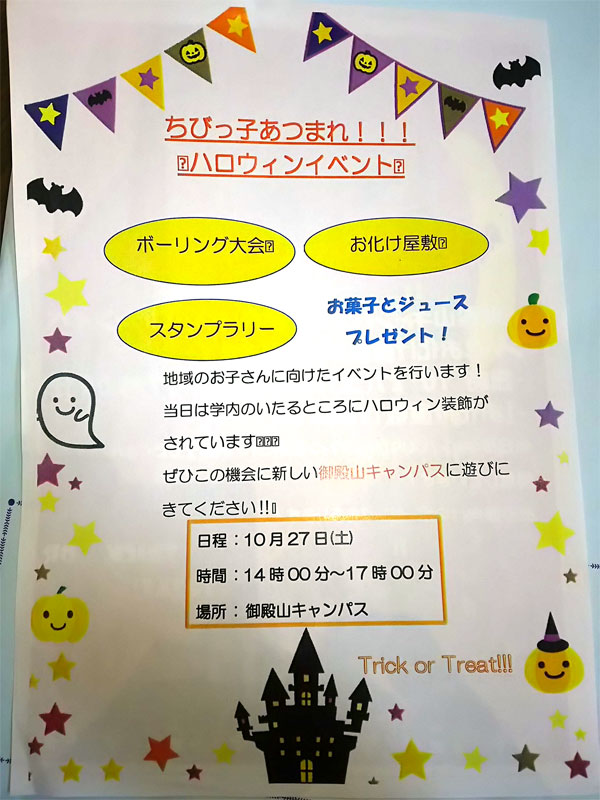 ちびっ子あつまれ！！！
⍰ハロウィンイベント⍰
ボーリング大会⍰
お化け屋敷⍰
スタンプラリー
お菓子とジュース
プレゼント！
地域のお子さんに向けたイベントを行います！
当日は学内のいたるところにハロウィン装飾が
されています⍰⍰⍰
ぜひこの機会に新しい御殿山キャンパスに遊びに
きてください!!⍰
日程：10月27日(土)
時間：14時00分～17時00分
場所：御殿山キャンパス
Trick or Treat!!!